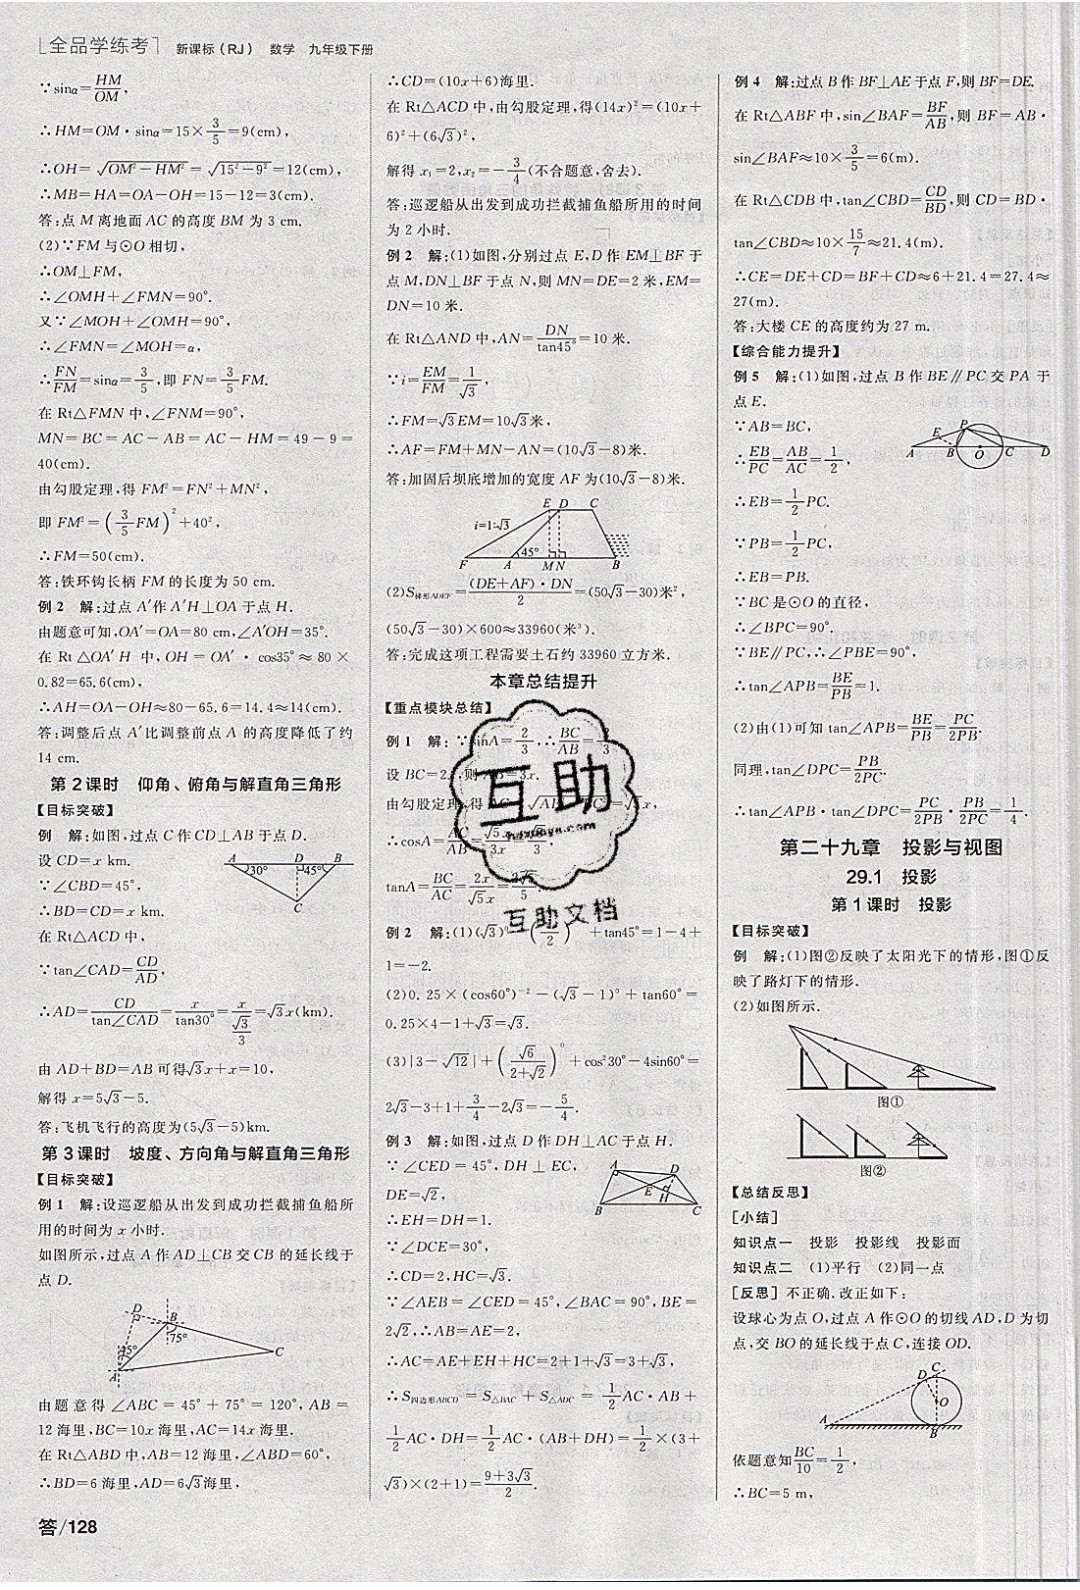 全品学练考 新课标(RJ) 数学 九年级下册
∵sinα=HM/OM,
∴HM=OM·sinα=15×3/5=9(cm),
∴OH=√(OM²-HM²)=√(15²-9²)=12(cm),
∴MB=HA=OA-OH=15-12=3(cm).
答:点M离地面AC的高度BM为3 cm.
(2)∵FM与⊙O相切,
∴OM⊥FM,
∴∠OMH+∠FMN=90°.
又∵∠MOH+∠OMH=90°,
∴∠FMN=∠MOH=α,
∴FN/FM=sinα=3/5,即FN=3/5FM.
在Rt△FMN中,∠FNM=90°,
MN=BC=AC-AB=AC-HM=49-9=
40(cm).
由勾股定理,得FM²=FN²+MN²,
即FM²=(3/5FM)²+40²,
∴FM=50(cm).
答:铁环钩长柄FM的长度为50 cm.
例2 解:过点A′作A′H⊥OA于点H.
由题意可知,OA′=OA=80 cm,∠A′OH=35°.
在Rt△OA′H中,OH=OA′·cos35°≈80×
0.82=65.6(cm),
∴AH=OA-OH≈80-65.6=14.4≈14(cm).
答:调整后点A′比调整前点A的高度降低了约
14 cm.
第2课时 仰角、俯角与解直角三角形
【目标突破】
例 解:如图,过点C作CD⊥AB于点D.
设CD=x km.
A D B 30° 45° C
∵∠CBD=45°,
∴BD=CD=x km.
在Rt△ACD中,
∵tan∠CAD=CD/AD,
∴AD=CD/tan∠CAD=x/tan30°=x/(√3/3)=√3x(km).
由AD+BD=AB可得√3x+x=10,
解得x=5√3-5.
答:飞机飞行的高度为(5√3-5)km.
第3课时 坡度、方向角与解直角三角形
【目标突破】
例1 解:设巡逻船从出发到成功拦截捕鱼船所
用的时间为x小时.
如图所示,过点A作AD⊥CB交CB的延长线于
点D.
D B 75° 45° C A
由题意得∠ABC=45°+75°=120°,AB=
12海里,BC=10x海里,AC=14x海里.
在Rt△ABD中,AB=12海里,∠ABD=60°,
∴BD=6海里,AD=6√3海里,
答/128
∴CD=(10x+6)海里.
在Rt△ACD中,由勾股定理,得(14x)²=(10x+
6)²+(6√3)²,
解得x₁=2,x₂=-3/4(不合题意,舍去).
答:巡逻船从出发到成功拦截捕鱼船所用的时间
为2小时.
例2 解:(1)如图,分别过点E,D作EM⊥BF于
点M,DN⊥BF于点N,则MN=DE=2米,EM=
DN=10米.
在Rt△AND中,AN=DN/tan45°=10米.
∵i=EM/FM=1/√3,
∴FM=√3EM=10√3米,
∴AF=FM+MN-AN=(10√3-8)米.
答:加固后坝底增加的宽度AF为(10√3-8)米.
E D C i=1:√3 45° F A M N B
(2)S梯形ADEF=(DE+AF)·DN/2=(50√3-30)米²,
(50√3-30)×600≈33960(米³).
答:完成这项工程需要土石约33960立方米.
本章总结提升
【重点模块总结】
例1 解:∵sinA=2/3,∴BC/AB=2/3
设BC=2x,则AB=3x.
由勾股定理,得AC=
∴cosA=AC/AB=
tanA=BC/AC=2x/√5x=2√5/5.
例2 解:(1)(√3)
+tan45°=1-4+
1=-2.
(2)0.25×(cos60°)⁻²-(√3-1)⁰+tan60°=
0.25×4-1+√3=√3.
(3)|3-√12|+(√6/(2+√2))⁰+cos²30°-4sin60°=
2√3-3+1+3/4-2√3=-5/4.
例3 解:如图,过点D作DH⊥AC于点H.
∵∠CED=45°,DH⊥EC,
DE=√2,
A D E H B C
∴EH=DH=1.
∵∠DCE=30°,
∴CD=2,HC=√3.
∵∠AEB=∠CED=45°,∠BAC=90°,BE=
2√2,∴AB=AE=2,
∴AC=AE+EH+HC=2+1+√3=3+√3,
∴S四边形ABCD=S△BAC+S△ADC=1/2AC·AB+
1/2AC·DH=1/2AC·(AB+DH)=1/2×(3+
√3)×(2+1)=(9+3√3)/2.
例4 解:过点B作BF⊥AE于点F,则BF=DE.
在Rt△ABF中,sin∠BAF=BF/AB,则BF=AB·
sin∠BAF≈10×3/5=6(m).
在Rt△CDB中,tan∠CBD=CD/BD,则CD=BD·
tan∠CBD≈10×15/7≈21.4(m).
∴CE=DE+CD=BF+CD≈6+21.4=27.4≈
27(m).
答:大楼CE的高度约为27 m.
【综合能力提升】
例5 解:(1)如图,过点B作BE∥PC交PA于
点E.
∵AB=BC,
∴EB/PC=AB/AC=1/2,
E P A B O C D
∴EB=1/2PC.
∵PB=1/2PC,
∴EB=PB.
∵BC是⊙O的直径,
∴∠BPC=90°.
∵BE∥PC,∴∠PBE=90°,
∴tan∠APB=BE/PB=1.
(2)由(1)可知tan∠APB=BE/PB=PC/2PB.
同理,tan∠DPC=PB/2PC.
∴tan∠APB·tan∠DPC=PC/2PB·PB/2PC=1/4.
第二十九章 投影与视图
29.1 投影
第1课时 投影
【目标突破】
例 解:(1)图②反映了太阳光下的情形,图①反
映了路灯下的情形.
(2)如图所示.
图①
图②
【总结反思】
[小结]
知识点一 投影 投影线 投影面
知识点二 (1)平行 (2)同一点
[反思] 不正确.改正如下:
设球心为点O,过点A作⊙O的切线AD,D为切
点,交BO的延长线于点C,连接OD.
C D O A B
依题意知BC/10=1/2,
∴BC=5 m,
互助
hdzuoye.com
互助文档